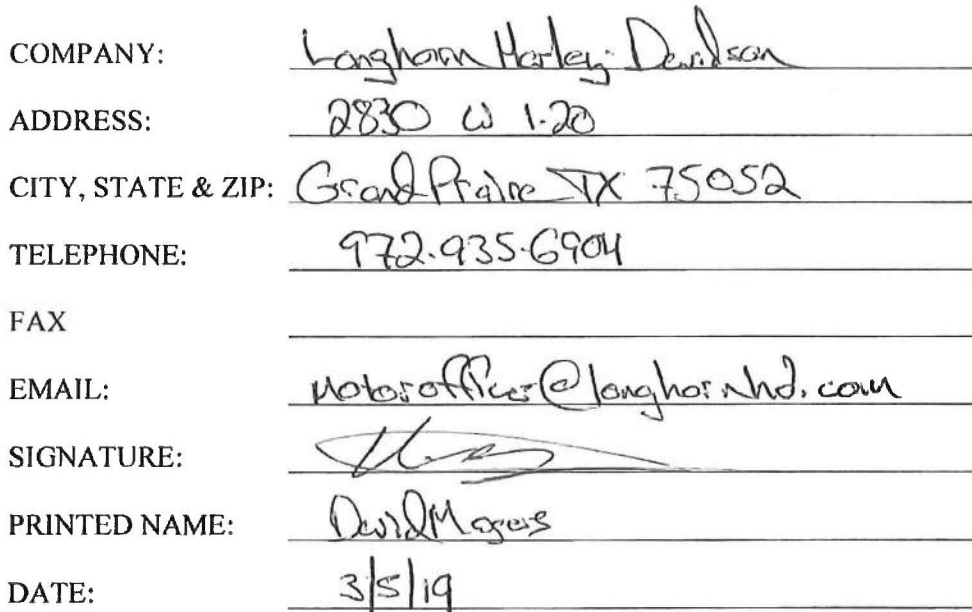 COMPANY: Longhorn Harley-Davidson
ADDRESS: 2830 W I-20
CITY, STATE & ZIP: Grand Prairie TX 75052
TELEPHONE: 972.935.6904
FAX
EMAIL: motorofficer@longhornhd.com
SIGNATURE:
PRINTED NAME: David
DATE: 3/5/19